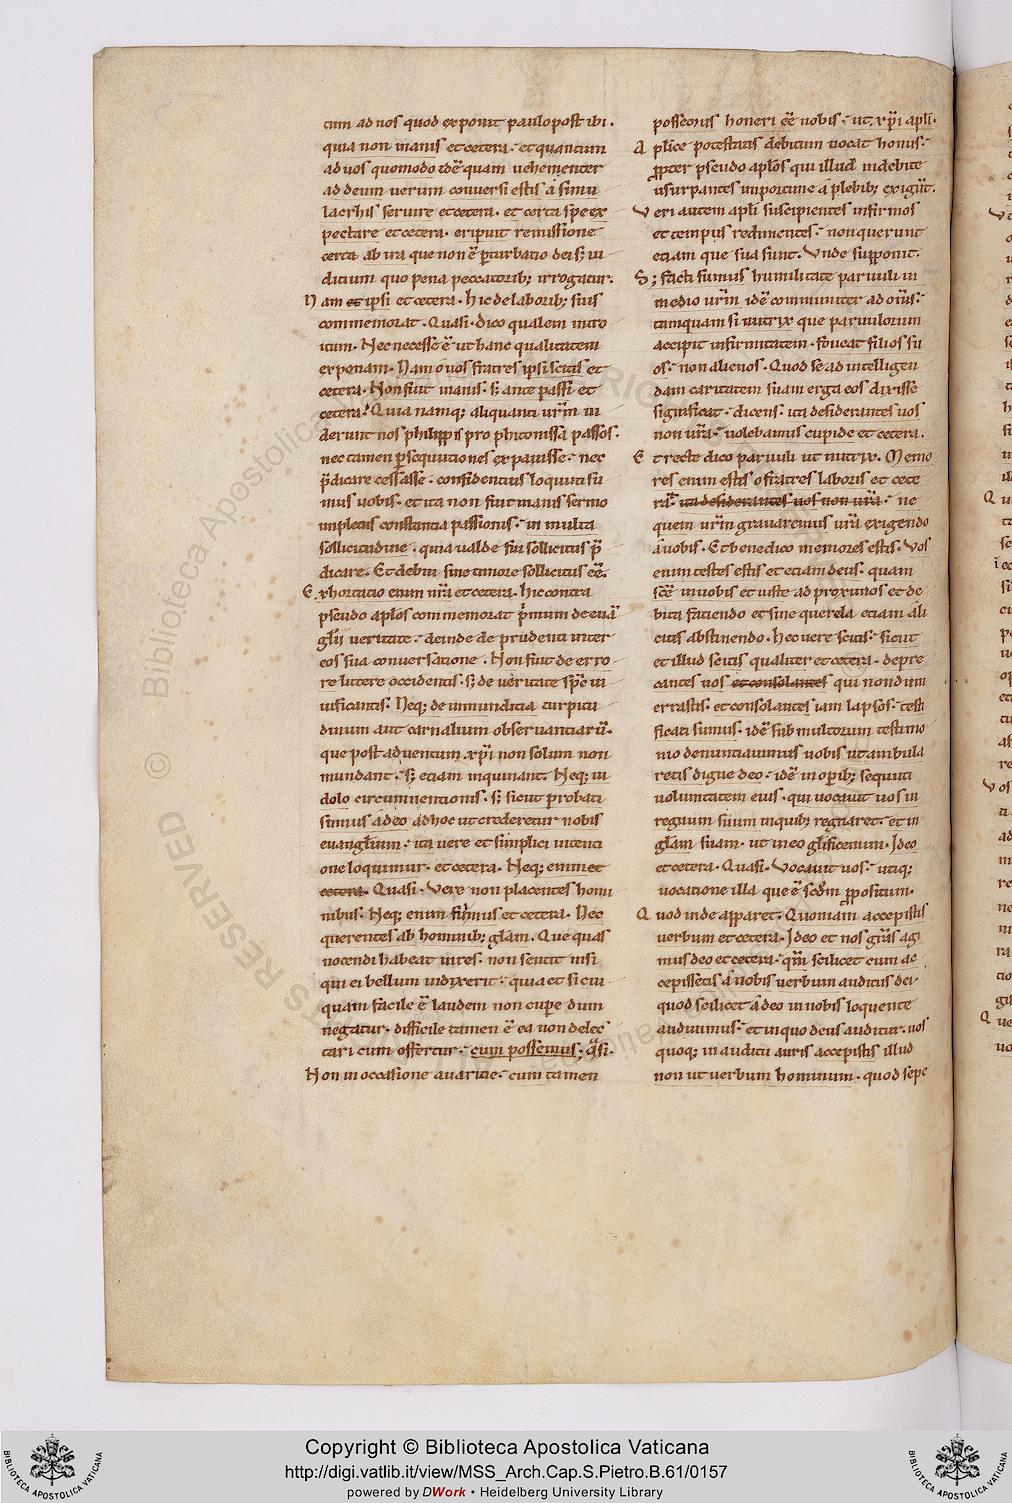 tum ad nos quod exponit paulo post ibi.
quia non inanis et cetera. et quantum
ad uos quomodo idē quam uehementer
ad deum uerum conuersi estis a simu
lacrhis seruire et cetera. et certa spe ex
pectare et cetera. eripuit remissione
certa ab ira que non ē perturbatio dei s; iu
dicium quo pena peccatorib; irrogatur.
Nam et ipsi et cetera. hic de laborib; suis
commemorat. Quasi. dico qualem intro
itum. Nec necesse ē ut hanc qualitatem
exponam. Nam o uos fratres ipsi scitis et
cetera. Non fuit inanis. s; ante passi et
cetera. Quia namq; aliquanti urm̄ ui
derunt nos philippis pro phitonissa passos.
nec tamen psequutiones expauisse. nec
p̄dicare cessasse. confidentius loquuti su
mus uobis. et ita non fuit inanis sermo
impletus constantia passionis. in multa
sollicitudine. quia ualde fui sollicitus p̄
dicare. Et debui sine timore sollicitus eē.
Exhortatio enim nr̄a et cetera. hic contra
pseudo aplos commemorat p̄mum de euā
glii ueritate. deinde de prudenti inter
eos sua conuersatione. Non fuit de erro
re littere occidentis. s; de ueritate sp̄e ui
uificantis. Neq; de inmunditia turpitu
dinum aut carnalium obseruantiarū.
que post aduentum xp̄i non solum non
mundant. s; etiam inquinant. Neq; in
dolo circumuentionis. s; sicut probati
sumus a deo ad hoc ut crederetur nobis
euanglium. ita uere et simplici intenti
one loquimur. et cetera. Neq; enim et
cetera. Quasi. Vere non placentes homi
nibus. Neq; enim fuimus et cetera. Nec
querentes ab hominib; glam. Que quas
nocendi habeat uires. non sentit nisi
qui ei bellum indixerit. quia et si cui
quam facile ē laudem non cupe dum
negatur. difficile tamen ē ea non delec
tari cum offertur. cum possemus; q̄si.
Non in occasione auaritie. cum tamen
possemus honeri eē uobis. ut xp̄i apli.
Aplice potestatis debitum uocat honus.
ppter pseudo aplos qui illud indebite
usurpantes importune a plebib; exigūt.
Veri autem apli suscipientes infirmos
et tempus redimentes. non querunt
etiam que sua sunt. Vnde supponit.
S; facti sumus humilitate paruuli in
medio urm̄ idē communiter ad oms̄.
tamquam si nutrix que paruulorum
accipit infirmitatem. foueat filios su
os. non alienos. Quod se ad intelligen
dam caritatem suam erga eos dixisse
significat. dicens. ita desiderantes uos
non ur̄a. uolebamus cupide et cetera.
Et recte dico paruuli ut nutrix. Memo
res enim estis o fratres laboris et cete
ra. ita desiderantes uos non ur̄a. ne
quem urm̄ grauaremus ur̄a exigendo
a uobis. Et bene dico memores estis. Vos
enim testes estis et etiam deus. quam
scē in uobis et iuste ad proximos et de
bita faciendo et sine querela etiam a li
citis abstinendo. hec uere scitis. sicut
et illud scitis qualiter et cetera. depre
cantes uos et consolantes qui nondum
errastis. et consolantes iam lapsos. testi
ficati sumus. idē sub multorum testimo
nio denuntiauimus uobis ut ambula
retis digne deo. idē in operib; sequuti
uoluntatem eius. qui uocauit uos in
regnum suum inquib; regnaret. et in
glam suam. ut in eo glificemini. Ideo
et cetera. Quasi. Vocauit uos. utiq;
uocatione illa que ē scdm ppositum.
Quod inde apparet. Quoniam accepistis
uerbum et cetera. Ideo et nos gr̄as agi
mus deo et cetera. qm̄ scilicet cum ac
cepissetis a nobis uerbum auditus dei.
quod scilicet a deo in nobis loquente
audiuimus. et in quo deus auditur. uos
quoq; in auditu auris accepistis illud
non ut uerbum hominum. quod sepe
Copyright © Biblioteca Apostolica Vaticana
http://digi.vatlib.it/view/MSS_Arch.Cap.S.Pietro.B.61/0157
powered by DWork • Heidelberg University Library